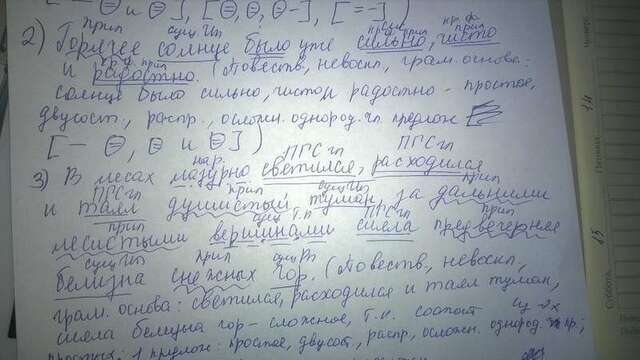 [— ⊖ и ⊖], [⊖, ⊖, ⊖–], [= –]
прил сущ Ип кр.ф. прил
2) Горячее солнце было уже сильно, чисто
кр.ф. прил
и радостно. (Повеств, невоскл, грам. основа:
солнце было сильно, чисто и радостно – простое,
двусост., распр., осложн. однород. чл. предлож
[— ⊖, ⊖ и ⊖])
нар. ПГС гл ПГС гл
3) В лесах лазурно светился, расходился
ПГС гл прил сущ Ип прил
и таял душистый туман, за дальними
прил сущ Т.п ПГС гл прил
лесистыми вершинами сияла предвечерняя
сущ Ип прил сущ Рп
белизна снежных гор. (Повеств, невоскл,
грам. основа: светился, расходился и таял туман,
сияла белизна гор – сложное, т.к. состоит из 2х
простых, 1 предлож: простое, двусост, распр, осложн. однород. пр;